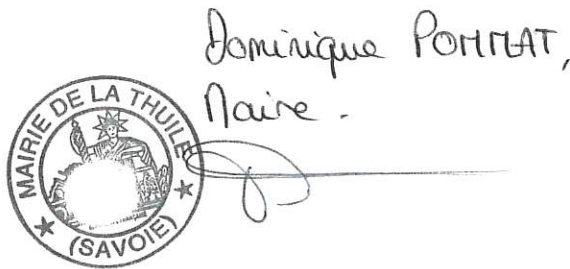 Dominique POMMAT,
Maire.
MAIRIE DE LA THUILE
(SAVOIE)